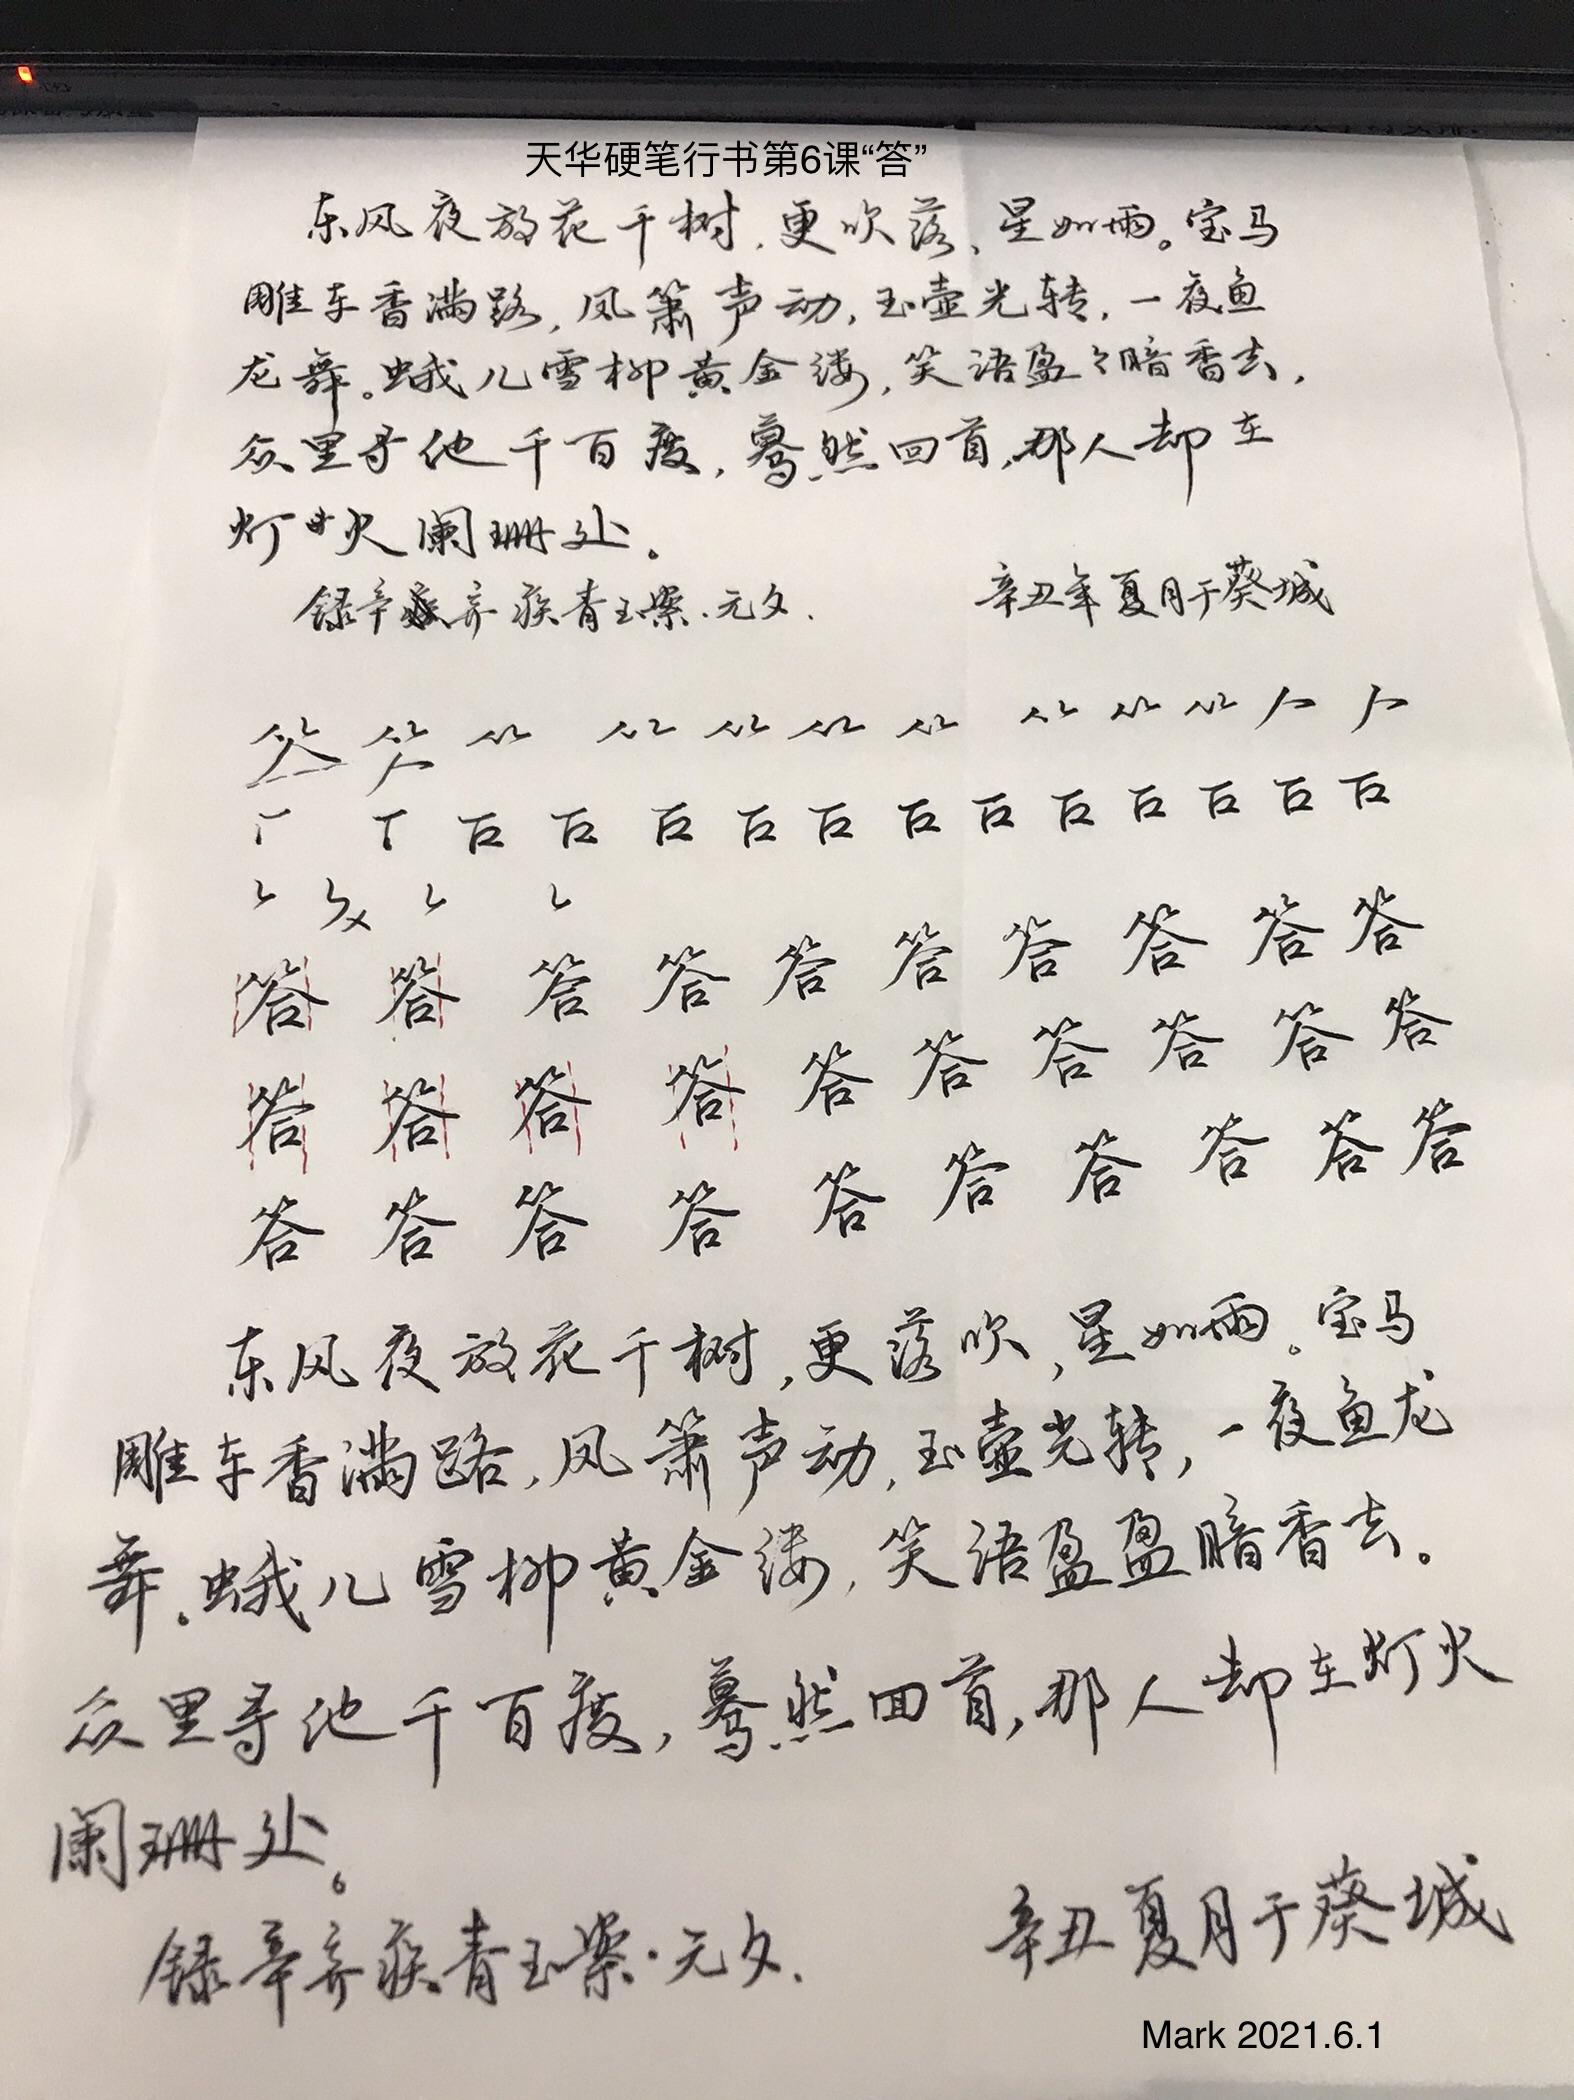 天华硬笔行书第6课“答”
东风夜放花千树,更吹落、星如雨。宝马
雕车香满路,凤箫声动,玉壶光转,一夜鱼
龙舞。蛾儿雪柳黄金缕,笑语盈々暗香去,
众里寻他千百度,蓦然回首,那人却在
灯火阑珊处。
录辛弃疾青玉案·元夕.
辛丑年夏月于葵城
答答答答答答答答答答
答答答答答答答答答答
答答答答答答答答答答
东风夜放花千树,更落吹,星如雨。宝马
雕车香满路,凤箫声动,玉壶光转,一夜鱼龙
舞。蛾儿雪柳黄金缕,笑语盈盈暗香去。
众里寻他千百度,蓦然回首,那人却在灯火
阑珊处。
录辛弃疾青玉案·元夕.
辛丑夏月于葵城
Mark 2021.6.1